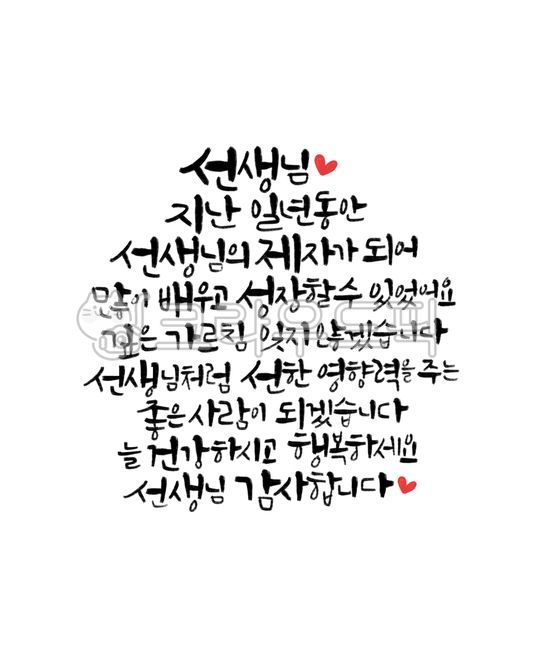 선생님
지난 일년동안
선생님의 제자가 되어
많이 배우고 성장할 수 있었어요
깊은 가르침 잊지않겠습니다
선생님처럼 선한 영향력을 주는
좋은 사람이 되겠습니다
늘 건강하시고 행복하세요
선생님 감사합니다
크라우드픽